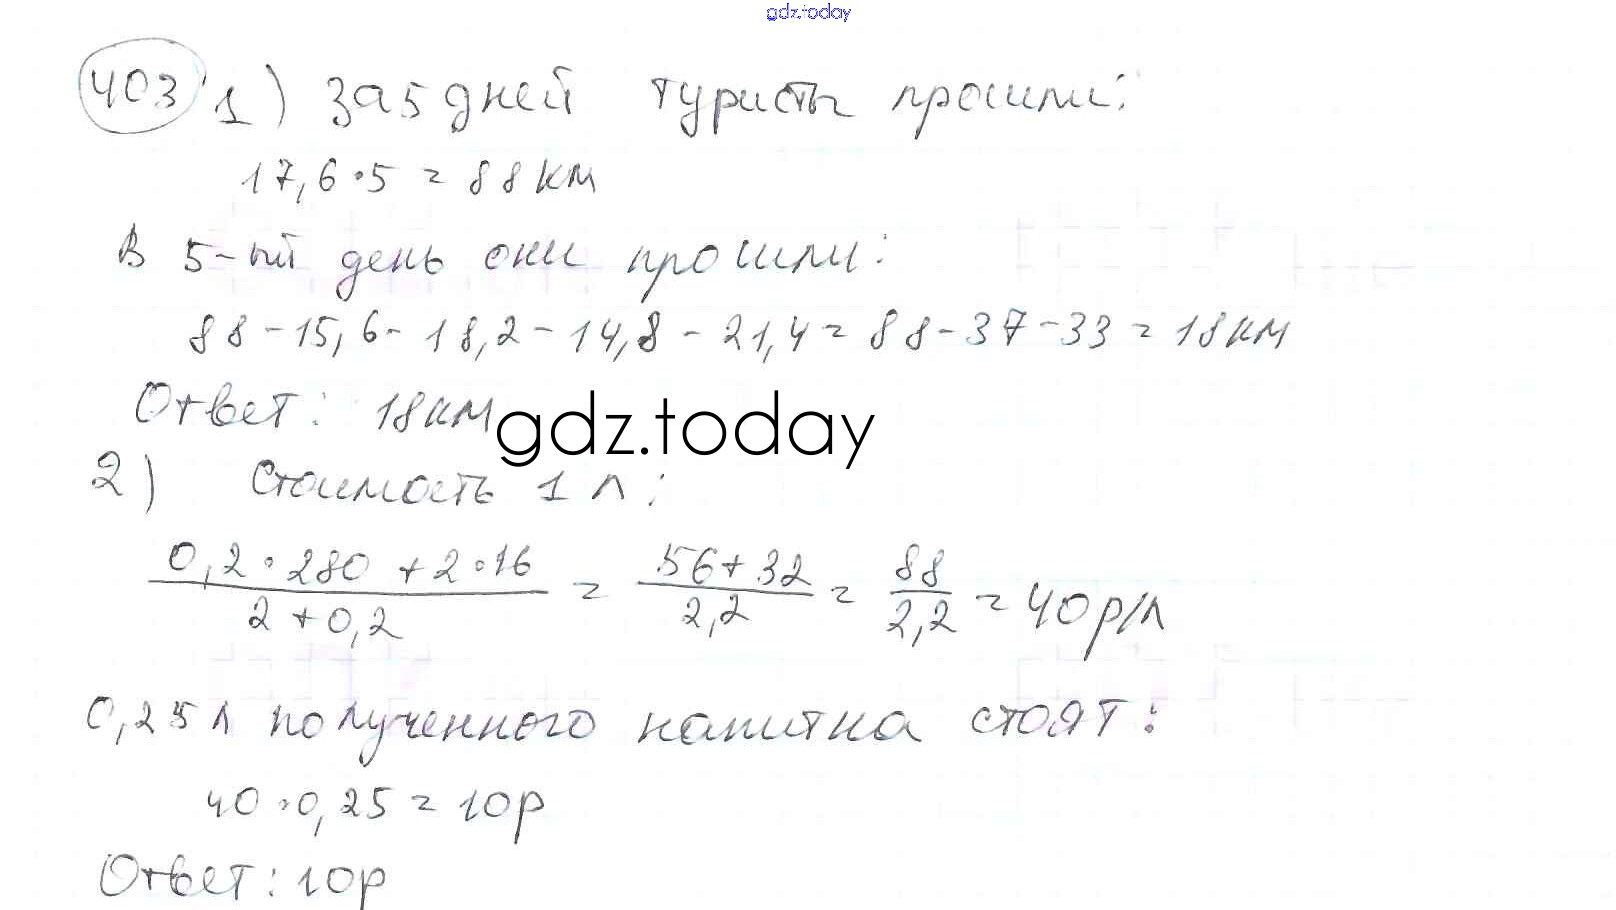 gdz.today
403 1) За 5 дней туристы прошли:
17,6·5 = 88 км
В 5-ый день они прошли:
88-15,6-18,2-14,8-21,4=88-37-33=18км
Ответ: 18км
gdz.today
2) Стоимость 1 л:
0,2·280+2·16 / 2+0,2 = 56+32 / 2,2 = 88 / 2,2 = 40р/л
0,25л полученного напитка стоят:
40·0,25=10р
Ответ: 10р